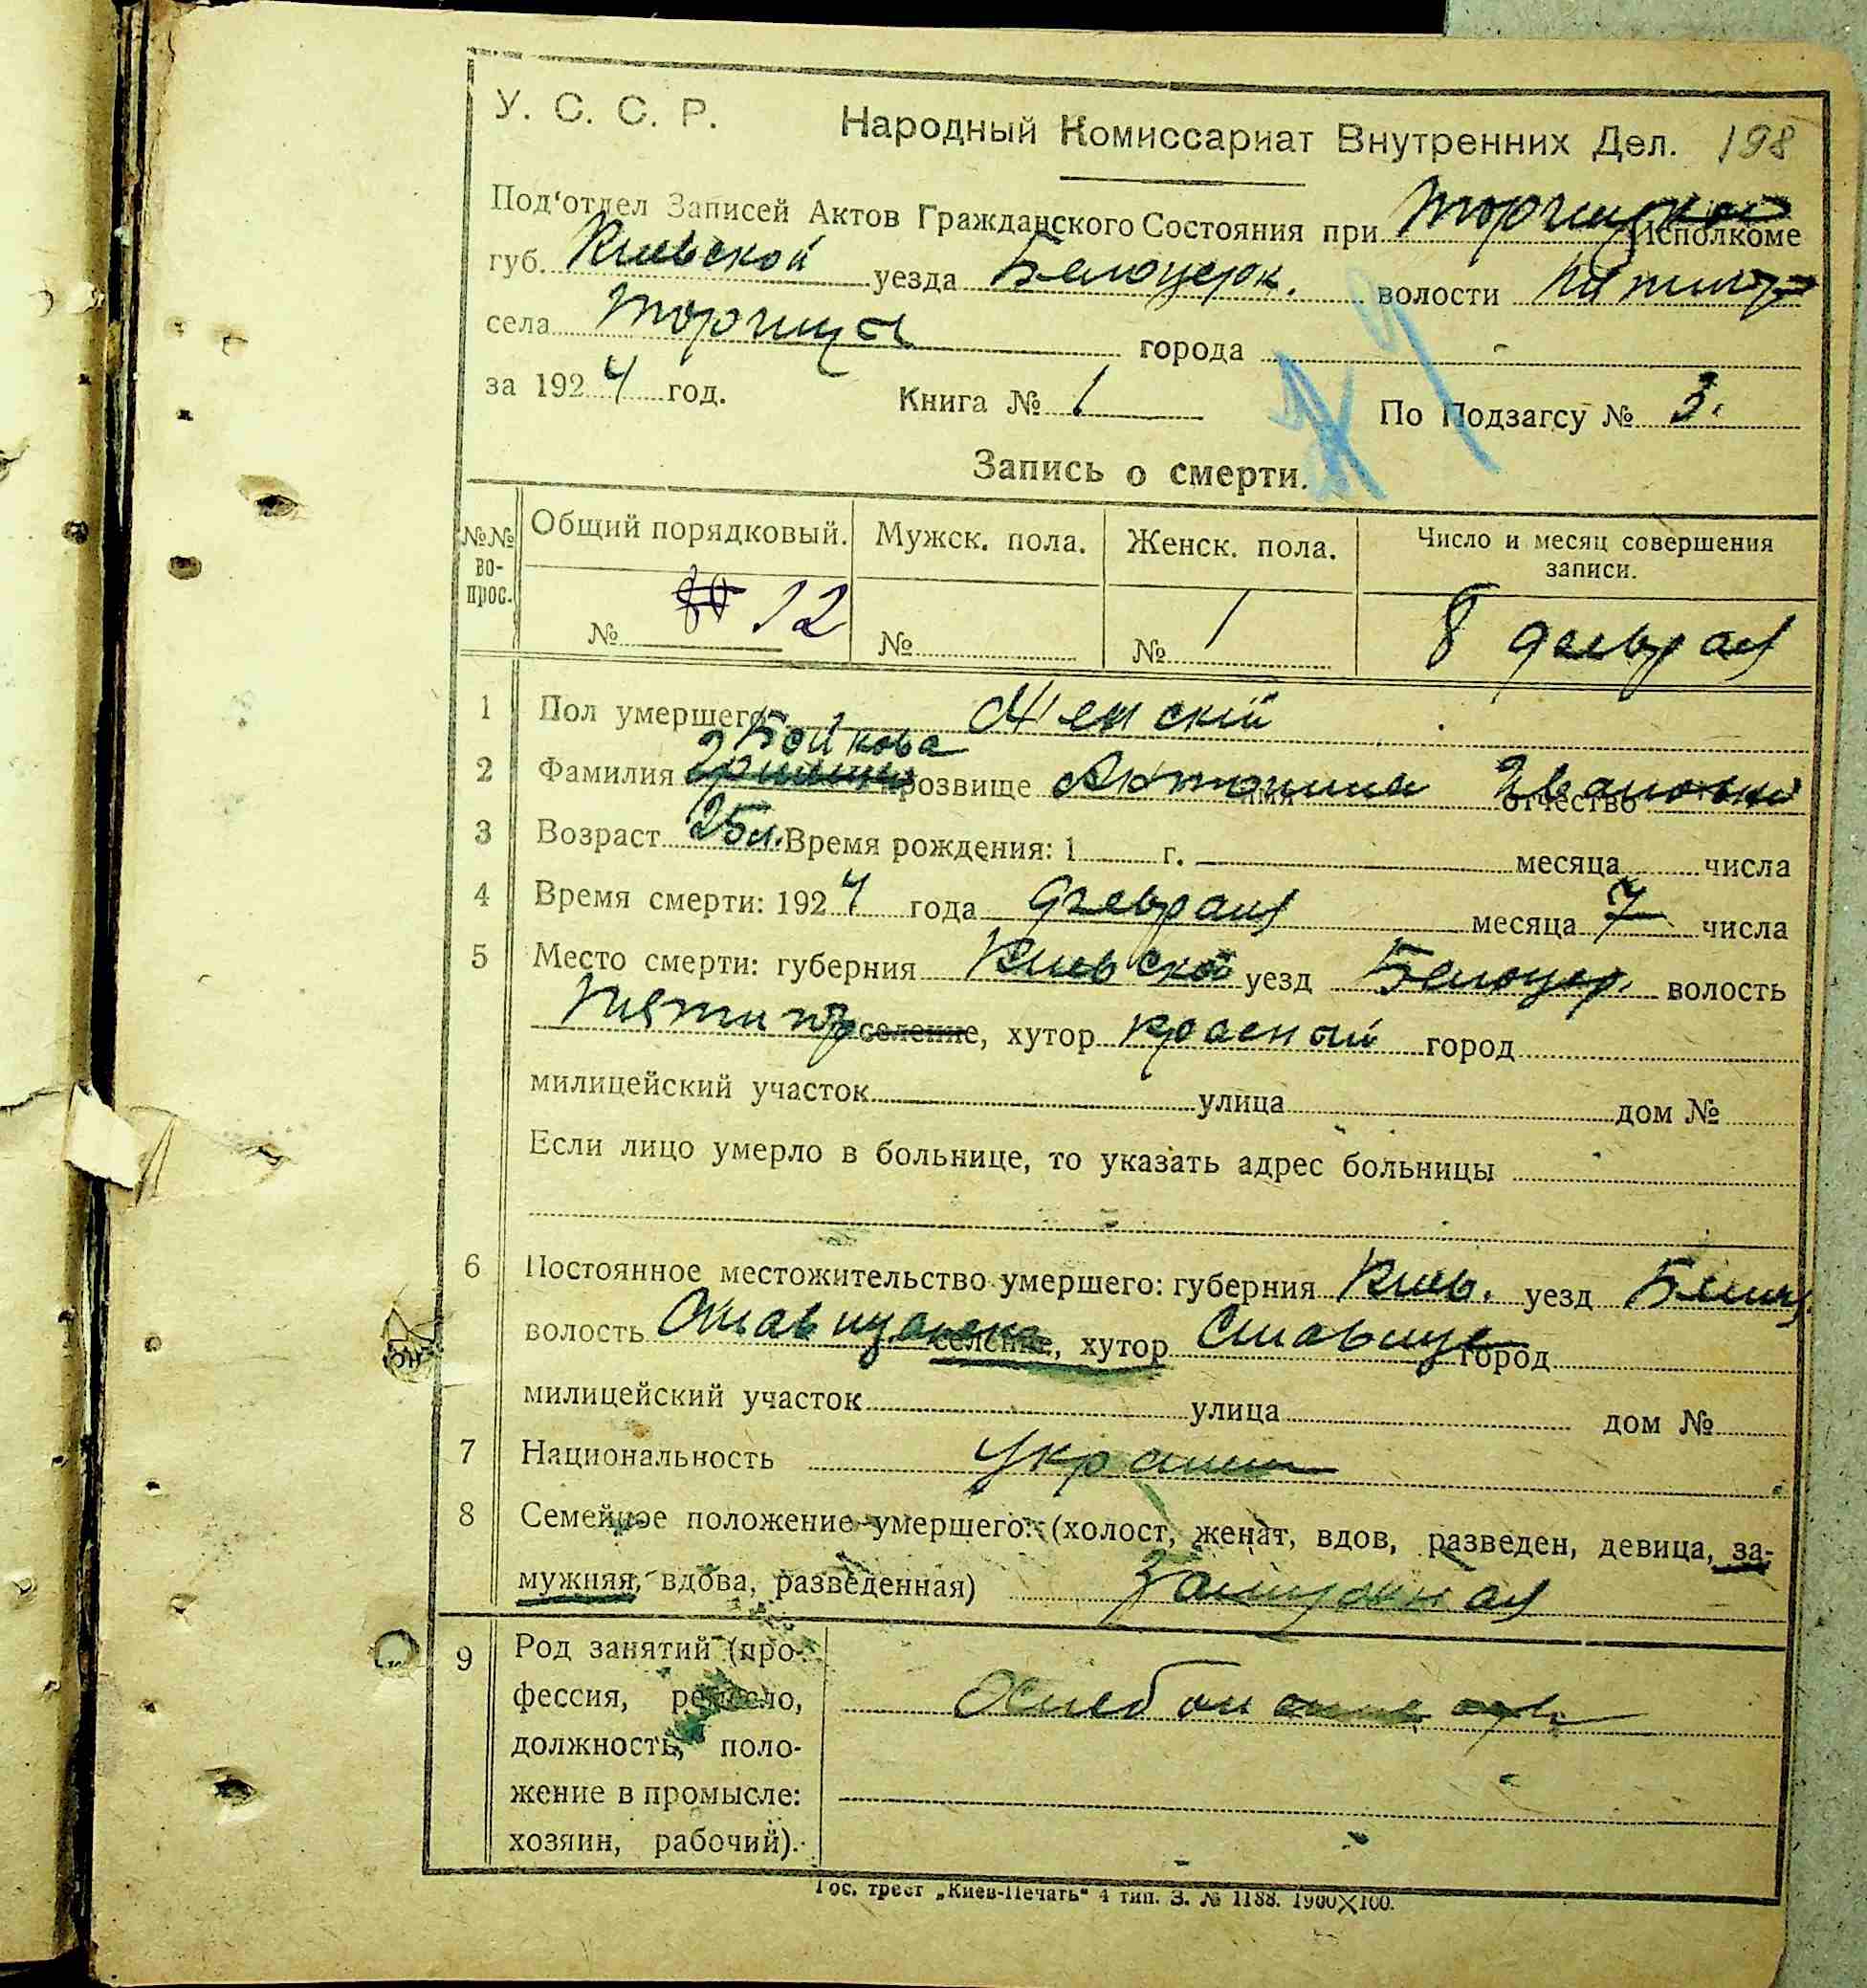 У. С. С. Р. Народный Комиссариат Внутренних Дел. 198
Под'отдел Записей Актов Гражданского Состояния при Торчицком Исполкоме
губ. Киевской уезда Белоцерк. волости Пятигор
села Торчица города
за 1924 год. Книга № 1 По Подзагсу № 3.
Запись о смерти.
№№ во-прос. Общий порядковый. Мужск. пола. Женск. пола. Число и месяц совершения записи.
№ 12 № № 1 8 февраля
1 Пол умершего Женскій
Бойкова
2 Фамилия прозвище Антонина имя Ивановна отчество
3 Возраст 25 л. Время рождения: 1 г. месяца числа
4 Время смерти: 1924 года февраля месяца 7 числа
5 Место смерти: губерния Киевской уезд Белоцер. волость
Пятигор селение, хутор Красный город
милицейский участок улица дом №
Если лицо умерло в больнице, то указать адрес больницы
6 Постоянное местожительство умершего: губерния Киев. уезд Белоц
волость Ставищанска селение, хутор Ставище город
милицейский участок улица дом №
7 Национальность Украин
8 Семейное положение умершего: (холост, женат, вдов, разведен, девица, за-
мужняя, вдова, разведенная) Замужная
9 Род занятий (про-
фессия, ремесло,
должность, поло-
жение в промысле:
хозяин, рабочий).
Гос. трест „Киев-Печать“ 4 тип. З. № 1188. 1900X100.